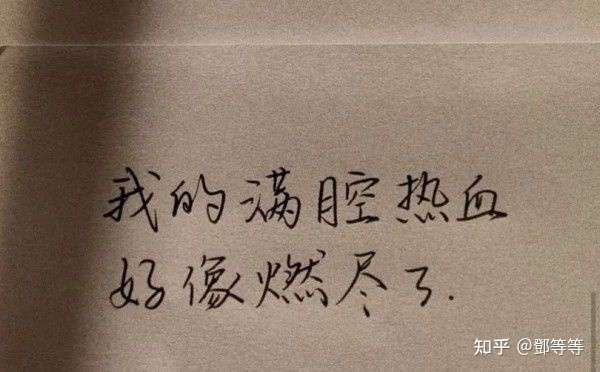 我的满腔热血
好像燃尽了.
知乎 @鄧等等